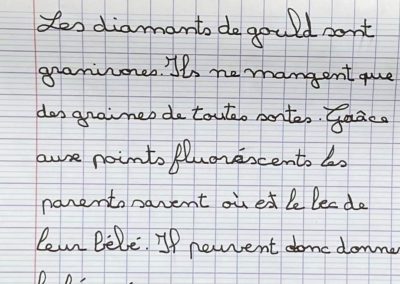 Les diamants de gould sont
granivores. Ils ne mangent que
des graines de toutes sortes. Grâce
aux points fluoréscents les
parents savent où est le bec de
leur bébé. Il peuvent donc donne